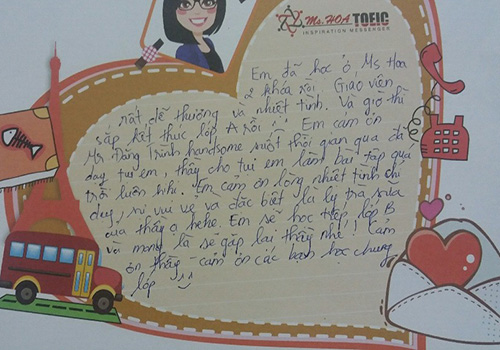 Ms. HOA TOEIC
INSPIRATION MESSENGER
Em đã học ở Ms Hoa
2 khóa rồi. Giáo viên
rất dễ thương và nhiệt tình. Và giờ thì
sắp kết thúc lớp A rồi ^^ Em cảm ơn
Mr Đăng Trình handsome suốt thời gian qua đã
dạy tụi em, thầy cho tụi em làm bài tập quá
trời luôn hihi. Em cảm ơn lòng nhiệt tình chỉ
dạy, sự vui vẻ và đặc biệt là ly trà sữa
của thầy ạ hehe. Em sẽ học tiếp lớp B
và mong là sẽ gặp lại thầy nhé! Cảm
ơn thầy cảm ơn các bạn học chung
lớp